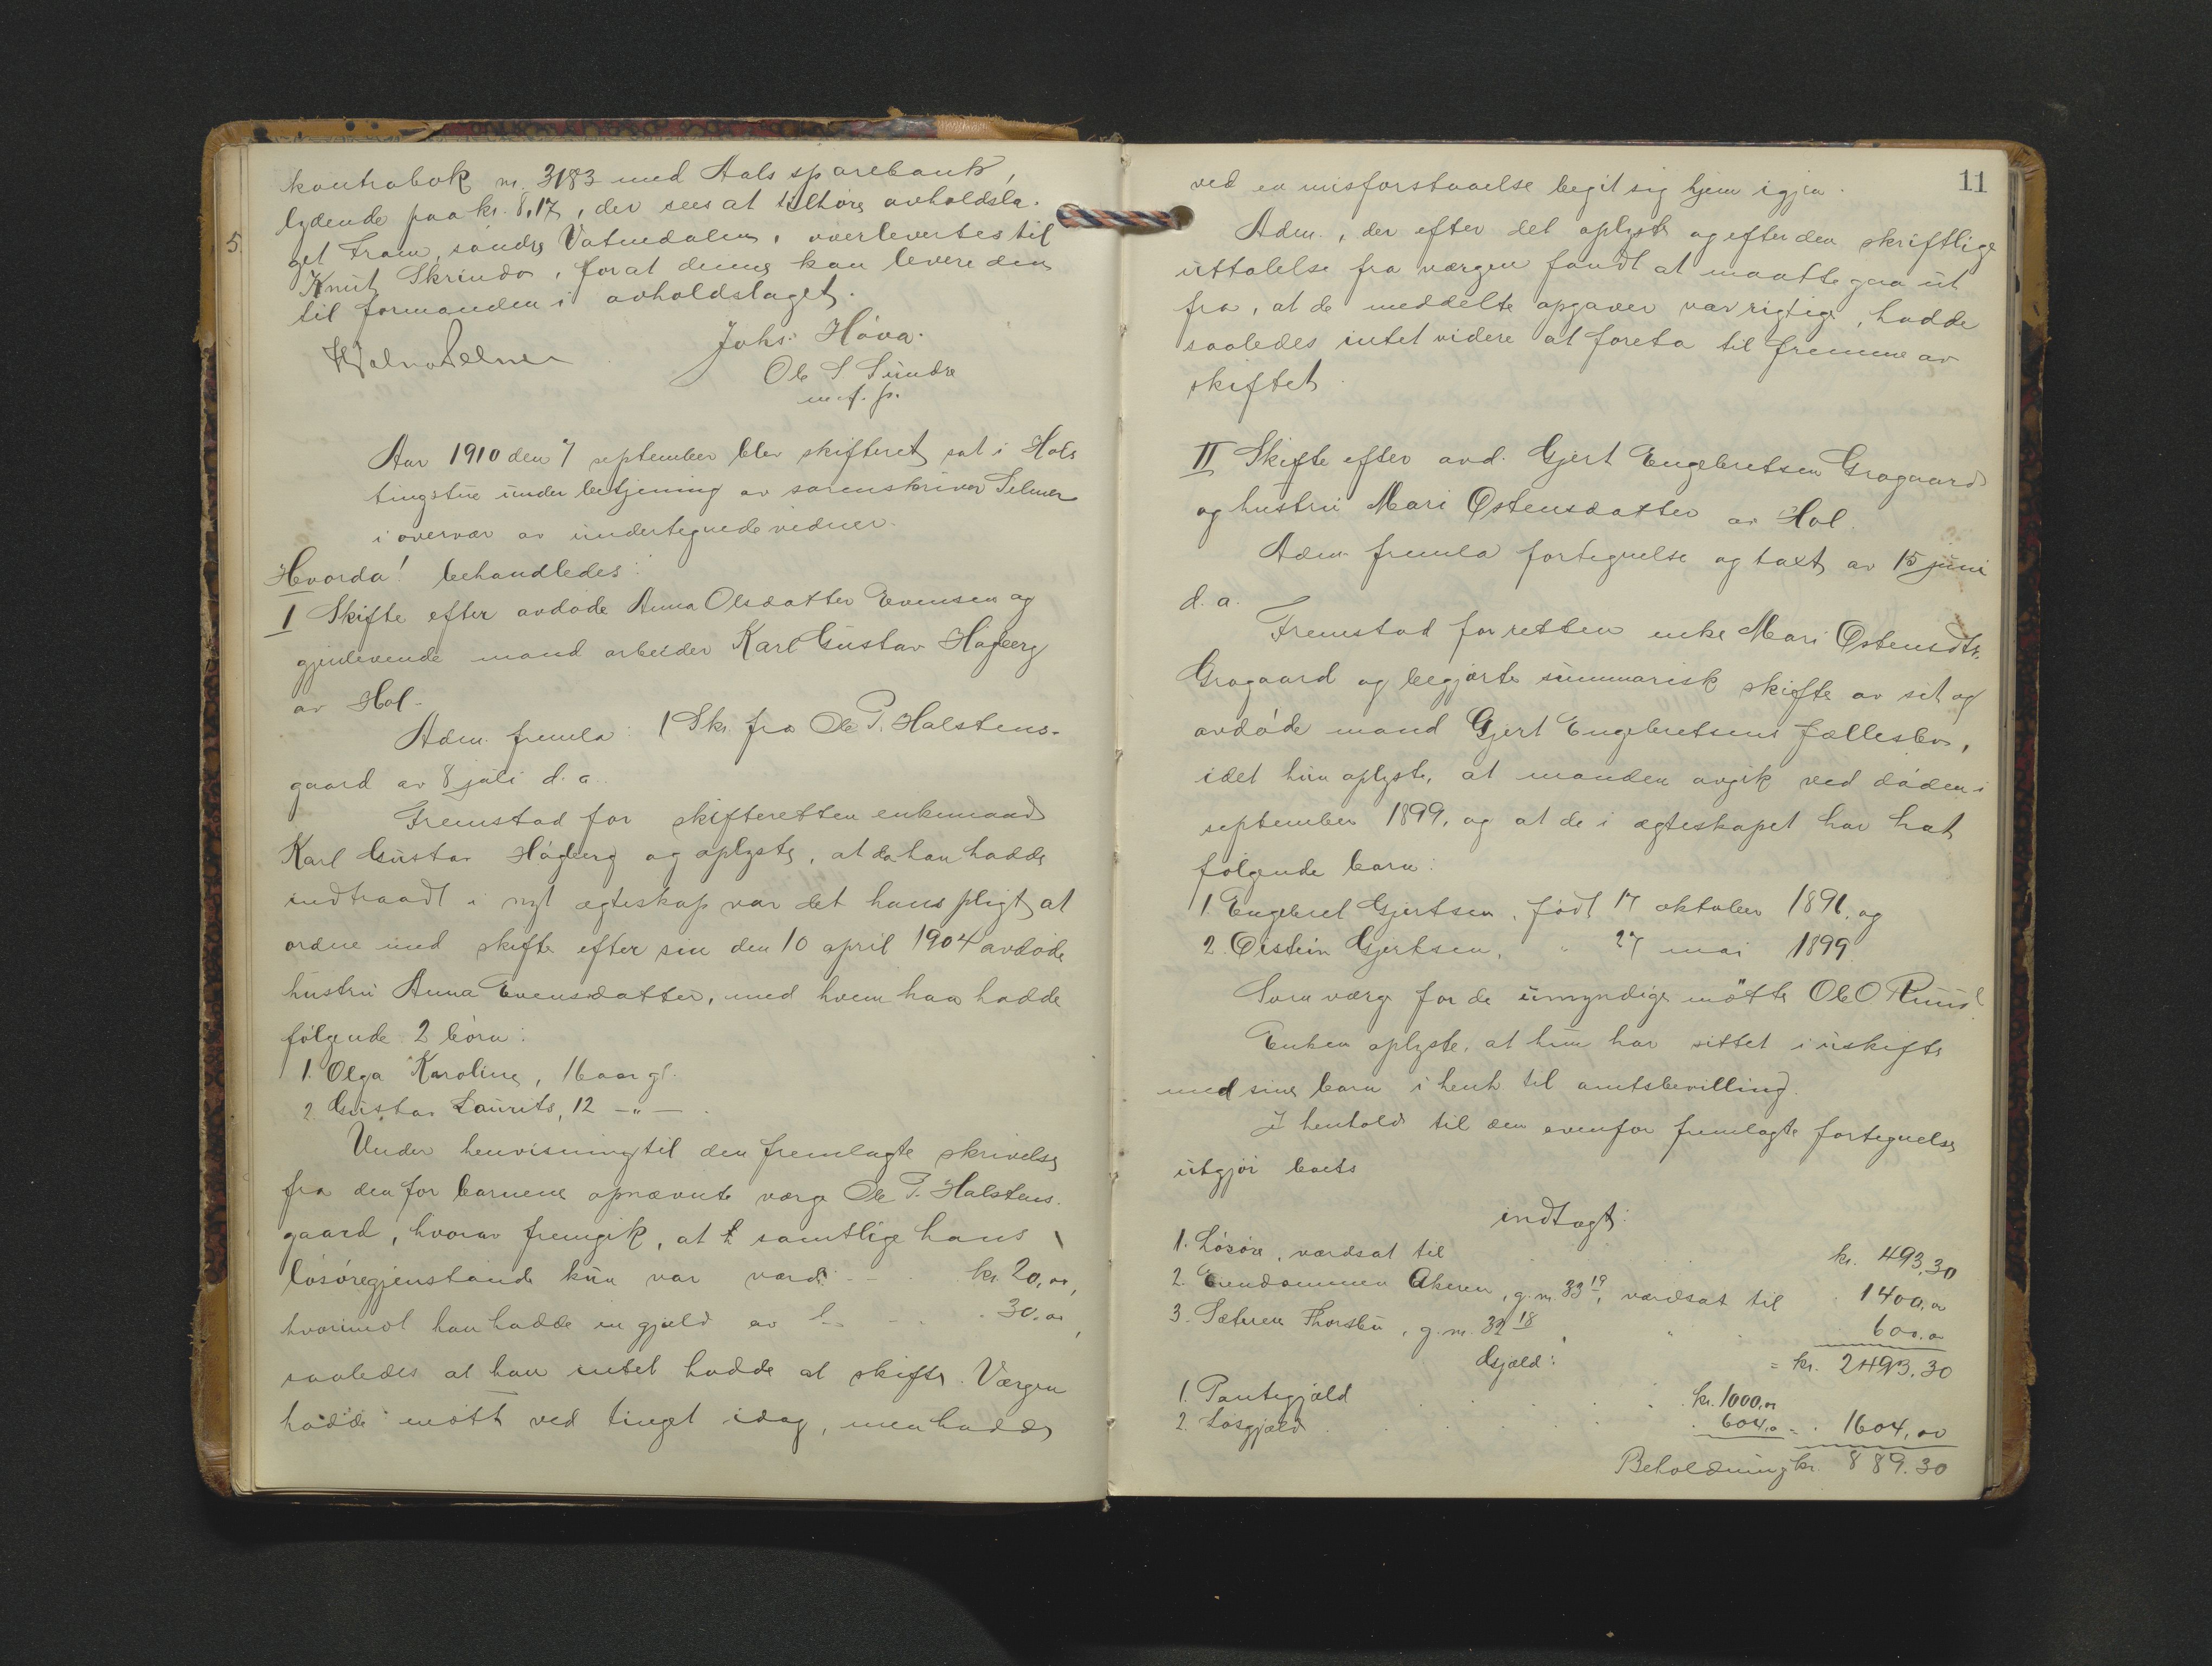 kontrabok nr. 3183 med Aals sparebank,
lydende paa kr. 8,17, der sees at tilhøre avholdsla-
5.
get Fram, søndre Vatnedalen, overlevertes til
Knut Skrindo, forat denne kan levere den
til formanden i avholdslaget.
Johs. Hova.
Ole S Sundre
m. f. p.
Aar 1910 den 7 september blev skifteret sat i Hols
tingstue under betjening av sorenskriver Selmer
i overvær av undertegnede vidner.
Hvorda! behandledes:
I Skifte efter avdøde Anna Olsdatter Evensen og
gjenlevende mand arbeider Karl Gustav Högberg
av Hol.
Adm. fremla: 1 Skr. fra Ole P. Halstens-
gaard av 8 juli d. a.
Fremstod for skifteretten enkemand
Karl Gustav Högberg og oplyste, at da han hadde
indtraadt i nyt egteskap var det hans pligt at
ordne med skifte efter sin den 10 april 1904 avdøde
hustru Anna Evensdatter, med hvem han hadde
følgende 2 børn:
1. Olga Karoline, 16 aar gl.
2. Gustav Laurits, 12 -"-
Under henvisning til den fremlagte skrivelse
fra den for barnene opnævnte verge Ole P. Halstens-
gaard, hvorav fremgik, at samtlige hans
løsøregjenstande kun var værd kr. 20,00,
hvorimot han hadde en gjæld av 30,00,
saaledes at han intet hadde at skifte. Værgen
hadde møtt ved tinget idag, men hadde
11
ved en misforstaaelse begit sig hjem igjen.
Adm., der efter det oplyste og efter den skriftlige
uttalelse fra værgen fandt at maatte gaa ut
fra, at de meddelte opgaver var rigtige, hadde
saaledes intet videre at foreta til fremme av
skiftet.
II Skifte efter avd. Gjert Engebretsen Grogaard
og hustru Mari Østensdatter av Hol.
Adm. fremla fortegnelse og taxt av 15 juni
d. a.
Fremstod for retten enke Mari Østensdtr.
Grogaard og begjærte summarisk skifte av sit og
avdøde mand Gjert Engebretsens fællesbo,
idet hun oplyste, at manden avgik ved døden i
september 1899, og at de i ægteskapet har hat
følgende barn:
1. Engebret Gjertsen, født 17 oktober 1891, og
2. Øistein Gjertsen, " 27 mai 1899.
Som værge for de umyndige møtte Ole O Ruud.
Enken oplyste, at hun har sittet i uskifte
med sine barn i henh. til amtsbevilling.
I henhold til den ovenfor fremlagte fortegnelse
utgjør boets
indtægt:
1. Løsøre, værdsat til kr. 493,30
2. Eiendommen Akeren, g. nr. 33 19, værdsat til 1400,00
3. Sæteren Thorsbu, g. nr. 32 18, " 600,00
= kr. 2493,30
Gjæld:
1. Pantegjæld kr. 1000,00
2. Løsgjæld 604,00 = 1604,00
Beholdning kr. 889,30